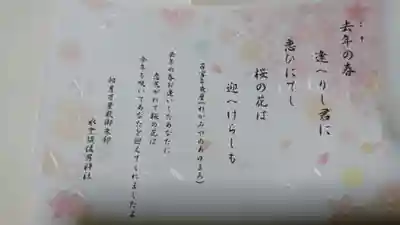 こぞ
去年の春
逢へりし君に
恋ひにてし
桜の花は
迎へけらしも
若宮年魚麿(わかみやのあゆまろ)
去年の春お逢いしたあなたに
恋焦がれて桜の花は
今年も咲いてあなたを迎えてくれましたよ
万葉歌御朱印
水堂須佐男神社